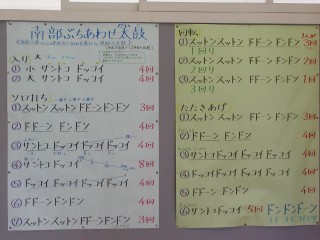 南部ぶちあわせ太鼓
入り
① 小 サンドコ ドッコイ 4回
② 大 サンドコ ドッコイ 4回
ソロ打ち
① スットン スットン ドドーン ドンドン 3回
② ドドーン ドンドン 4回
③ サントコ ドッコイ ドッコイ 4回
④ サントコ ドッコイ 8回
⑤ ドッコイ ドッコイ ドッコイ 4回
⑥ ドドーン ドンドン 4回
⑦ スットン スットン ドドーン ドンドン 3回
回転
① スットン スットン ドドーン ドンドン 3回
1回り
② スットン スットン ドドーン ドンドン
2回り
③ スットン スットン ドドーン ドンドン 1回
3回り
たたきあげ
① スットン スットン ドドーン ドンドン 3回
② ドドーン ドンドン 4回
③ サントコ ドッコイ ドッコイ 4回
④ ドッコイ ドッコイ ドッコイ 4回
⑤ ドドーン ドンドン 4回
⑥ サントコ ドッコイ 5回 ドンドンドーン